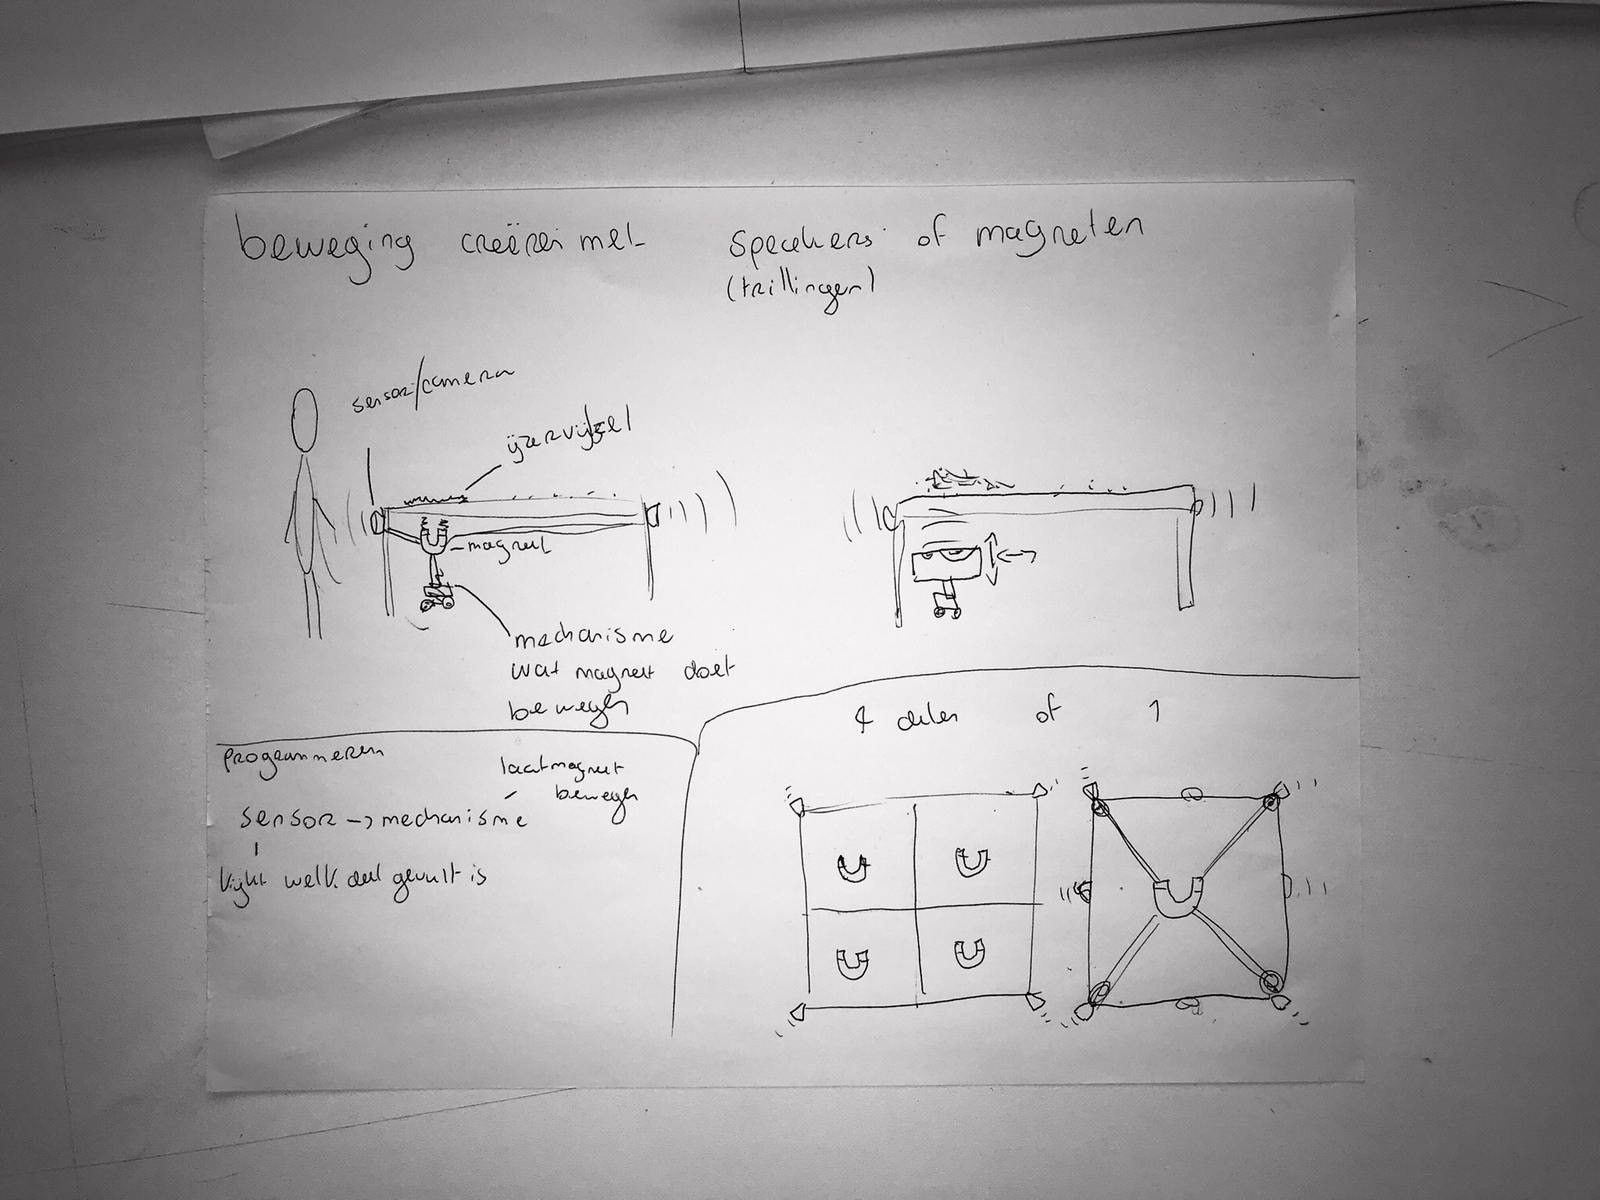 beweging creëren met speakers of magneten
(trillingen)
sensor/camera
ijzervijlsel
magneet
mechanisme
wat magneet doet
bewegen
4 delen of 1
programmeren
laat magneet
bewegen
sensor -> mechanisme
kijkt welk deel gevult is